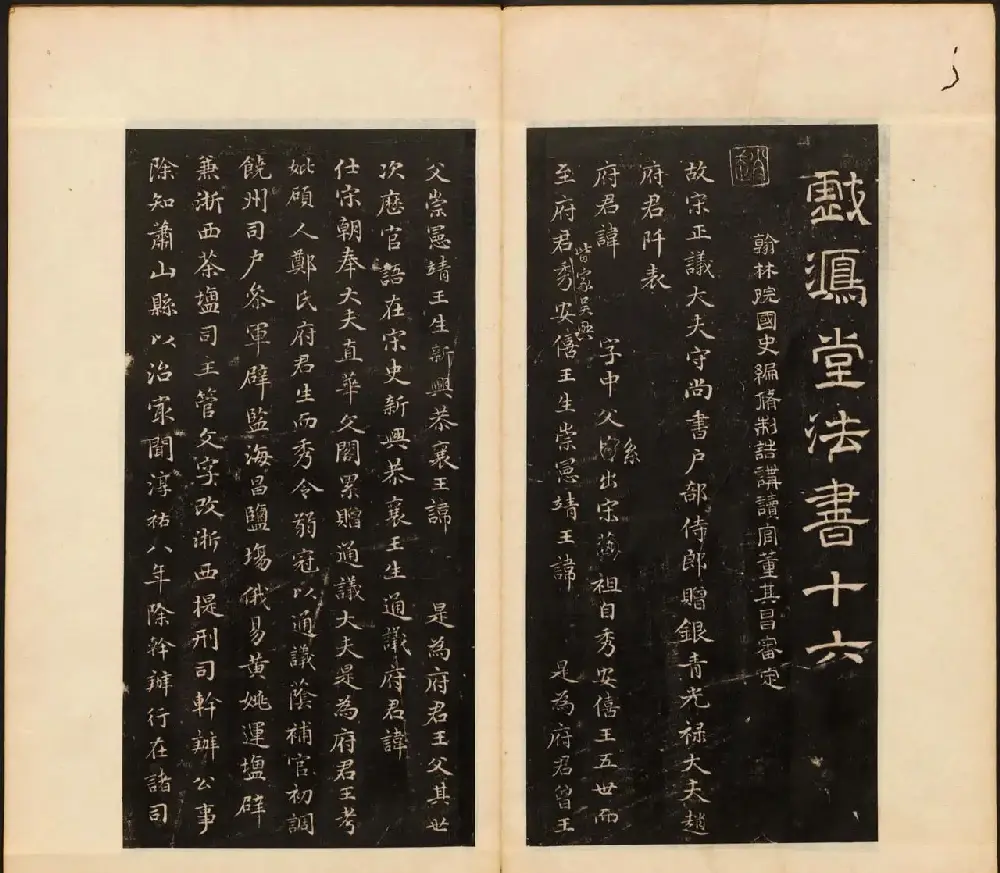 戲鴻堂法書十六
翰林院國史編脩制誥講讀官董其昌審定
故宋正議大夫守尚書户部侍郎贈銀青光禄大夫趙
府君阡表
府君諱 字中父系出宋 祖自秀安僖王五世而
至府君皆家吴興秀安僖王生崇憲靖王諱 是為府君曾王
父崇憲靖王生新興恭襄王諱 是為府君王父其世
次歷官語在宋史新興恭襄王生通議府君諱
仕宋朝奉大夫直華文閣累贈通議大夫是為府君王考
妣碩人鄭氏府君生而秀令弱冠以通議蔭補官初調
饒州司户叅軍辟監海昌鹽場俄易黄姚運塩辟
兼浙西茶塩司主管文字改浙西提刑司幹辦公事
除知蕭山縣以治冣聞淳祐八年除幹辦行在諸司